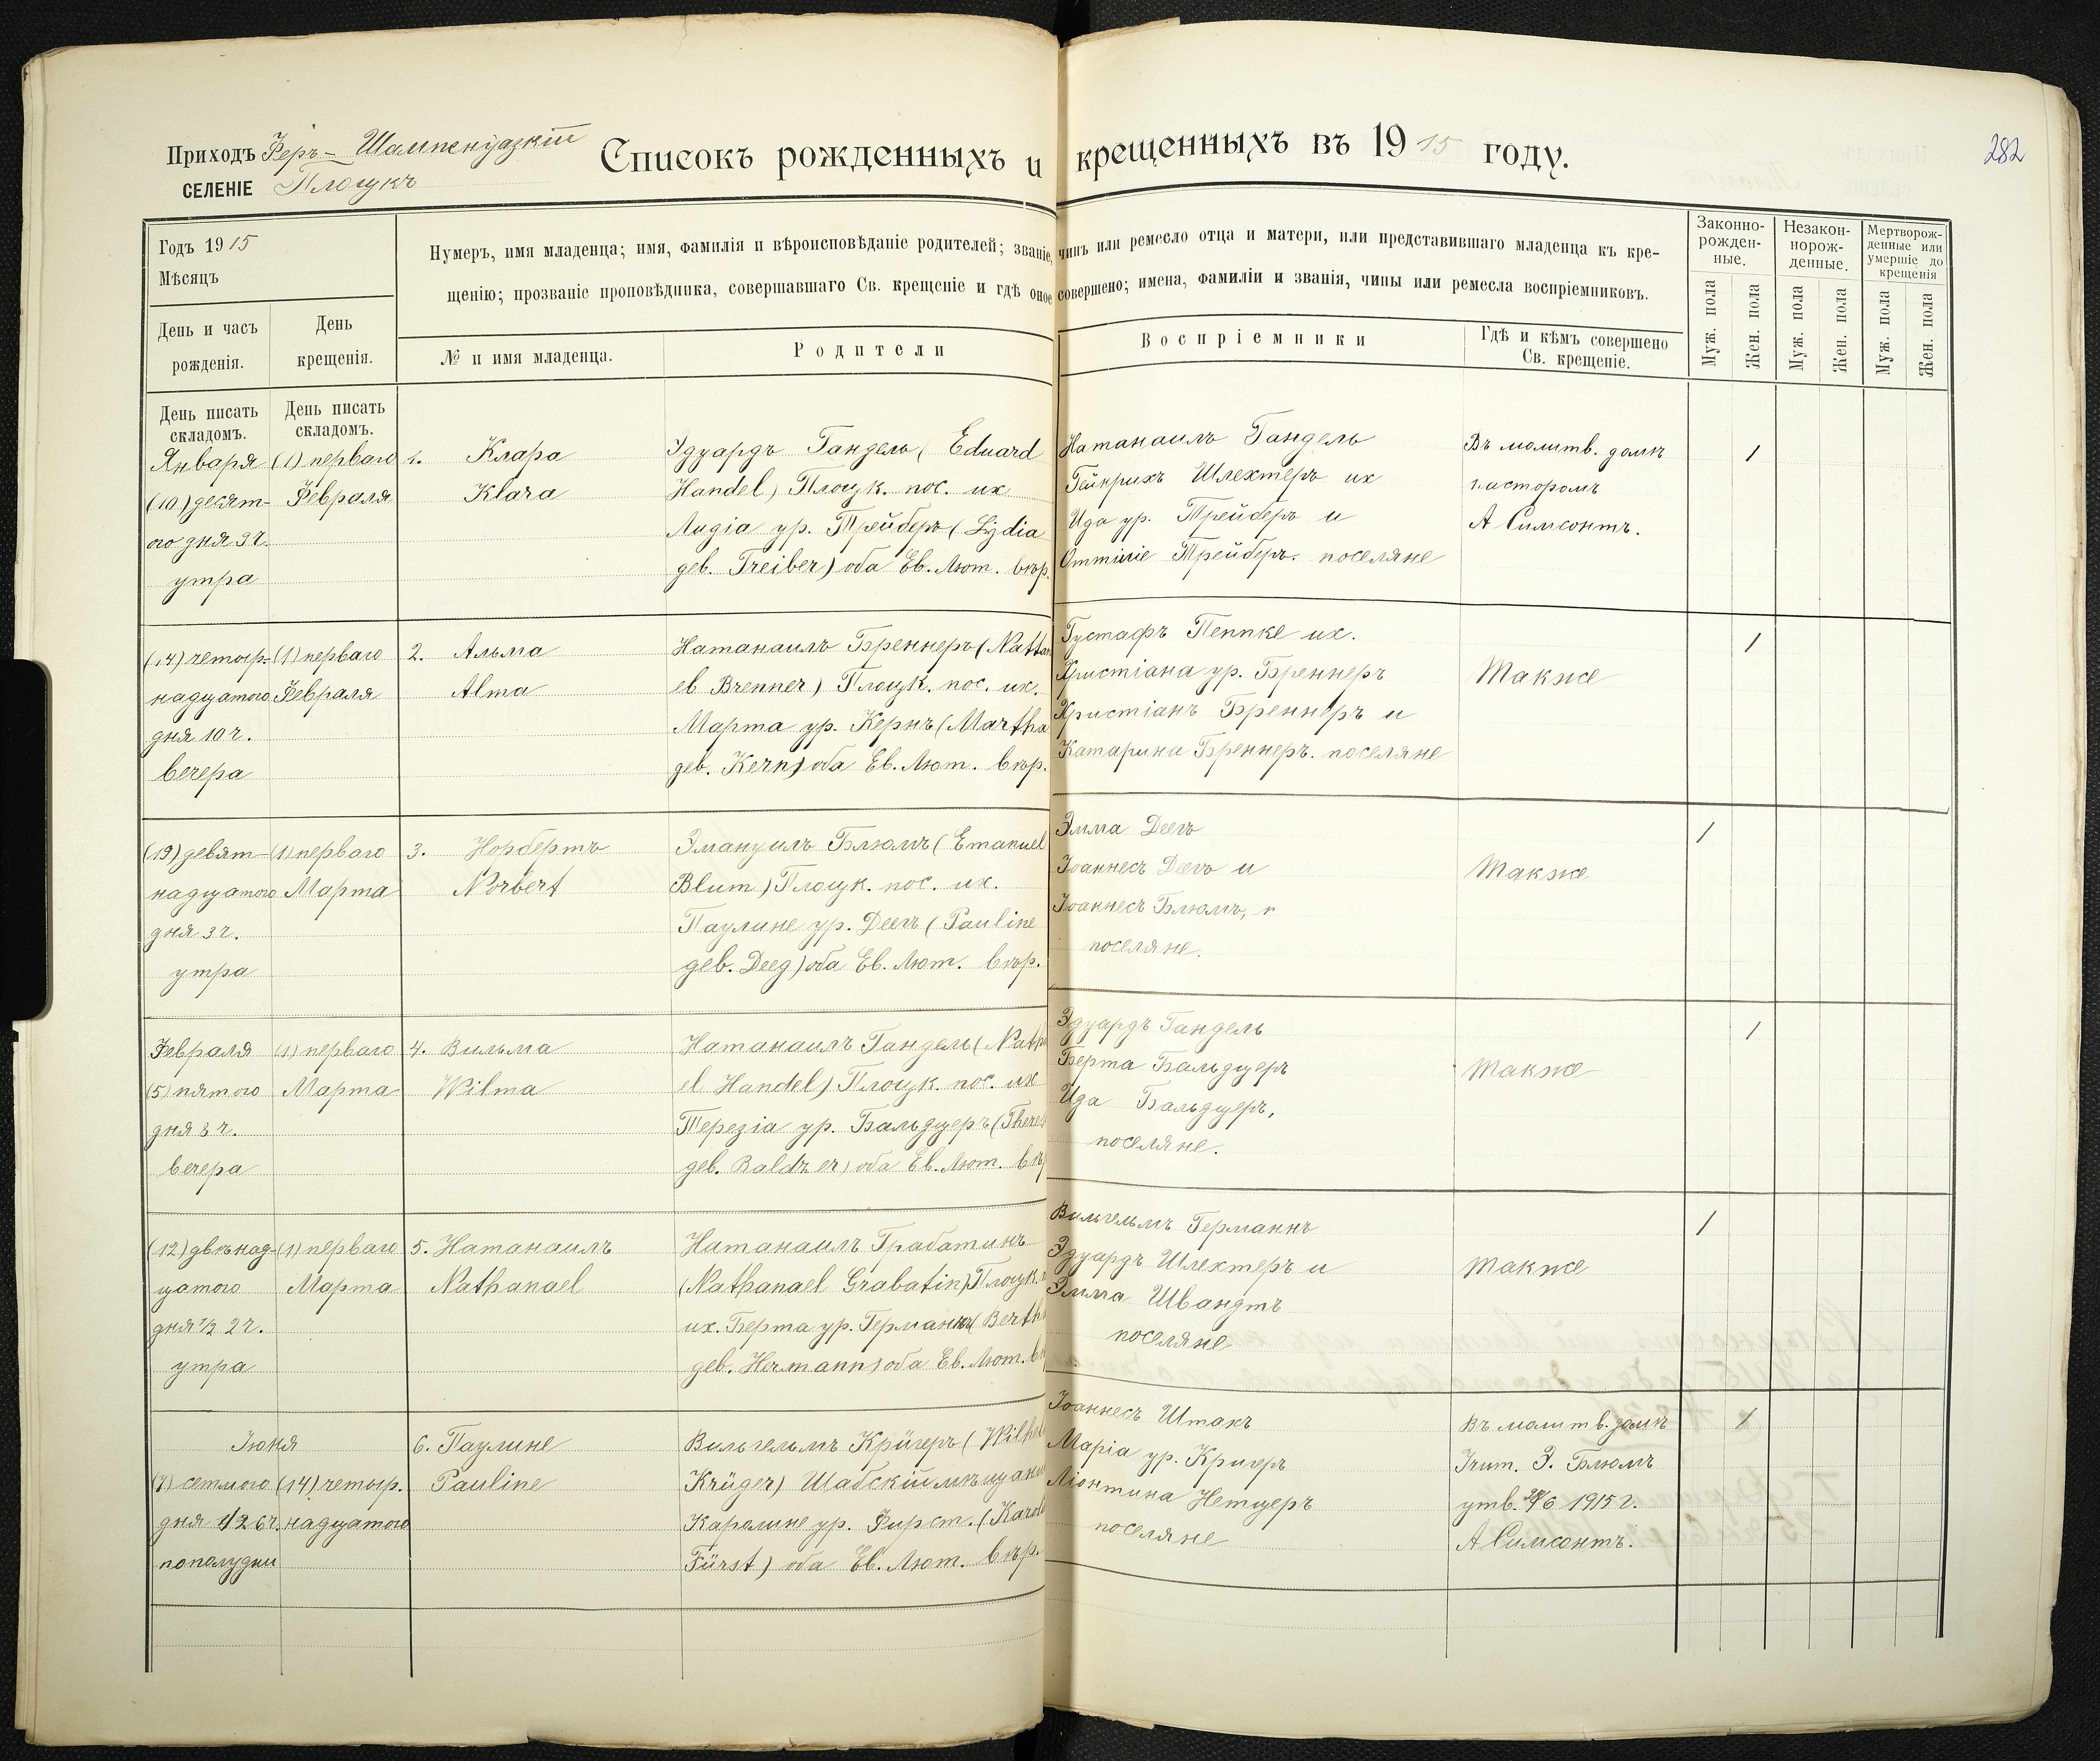 Приходъ Феръ-Шампенуазкій
СЕЛЕНІЕ Плоцкъ
Списокъ рожденныхъ и крещенныхъ въ 1915 году.
282
Годъ 1915
Мѣсяцъ
День и часъ
рожденія.
День
крещенія.
Нумеръ, имя младенца; имя, фамилія и вѣроисповѣданіе родителей; званіе, чинъ или ремесло отца и матери, или представившаго младенца къ кре-
щенію; прозваніе проповѣдника, совершавшаго Св. крещеніе и гдѣ оное совершено; имена, фамиліи и званія, чины или ремесла воспріемниковъ.
№ и имя младенца.
Родители
Воспріемники
Гдѣ и кѣмъ совершено
Св. крещеніе.
Законно-
рожден-
ные.
Незакон-
норож-
денные.
Мертворож-
денные или
умершіе до
крещенія
Муж. пола
Жен. пола
Муж. пола
Жен. пола
Муж. пола
Жен. пола
День писать
складомъ.
День писать
складомъ.
Января
(10) десят-
ого дня 3 ч.
утра
(1) перваго
Февраля
1. Клара
Klara
Эдуардъ Гандель (Eduard
Handel) Плоцк. пос. их
Лидія ур. Трейберъ (Lydia
геб. Treiber) оба Ев. Лют. вѣр.
Натанаилъ Гандель
Гейнрихъ Шлехтеръ их
Ида ур. Трейберъ и
Оттилie Трейберъ. поселяне
Въ молитв. домѣ
пасторомъ
А Симсонтъ.
1
(14) четыр-
надцатого
дня 10 ч.
вечера
(1) перваго
Февраля
2. Альма
Alma
Натанаилъ Бреннеръ (Nattan
el Brenner) Плоцк. пос. их.
Марта ур. Кернъ (Martha
геб. Kern) оба Ев. Лют. вѣр.
Густафъ Пеппке их.
Христіана ур. Бреннеръ
Христіанъ Бреннеръ и
Катарина Бреннеръ. поселяне
Также
1
(19) девят-
надцатого
дня 3 ч.
утра
(1) перваго
Марта
3. Норбертъ
Norbert
Эмануилъ Блюмъ (Emanuel
Blum) Плоцк. пос. их.
Паулине ур. Деегъ (Pauline
геб. Deeg) оба Ев. Лют. вѣр.
Эмма Деегъ
Іоаннесъ Деегъ и
Іоаннесъ Блюмъ,
поселяне.
Также
1
Февраля
(5) пятого
дня 8 ч.
вечера
(1) перваго
Марта
4. Вильма
Wilma
Натанаилъ Гандель (Natha
el Handel) Плоцк. пос. их
Терезіа ур. Бальдцеръ (Theres
геб. Baldzer) оба Ев. Лют. вѣр
Эдуардъ Гандель
Берта Бальдцеръ
Ида Бальдцеръ,
поселяне.
Также
1
(12) двѣнад-
цатого
дня ½ 2 ч.
утра
(1) перваго
Марта
5. Натанаилъ
Nathanael
Натанаилъ Грабатинъ
(Nathanael Grabatin) Плоцк. п
их. Берта ур. Германнъ (Berth
геб. Hermann) оба Ев. Лют. в
Вильгельмъ Германнъ
Эдуардъ Шлехтеръ и
Эмма Швандтъ
поселяне
Также
1
Іюня
(7) сетмого
дня 1/2 6 ч.
пополудни
(14) четыр.
надцатого
6. Паулине
Pauline
Вильгельмъ Крйгеръ (Wilhel
Krüger) Шабскій мѣщани
Каролине ур. Фирст. (Karol
Fürst) оба Ев. Лют. вѣр.
Іоаннесъ Штакъ
Маріа ур. Кригеръ
Ліонтина Нетцеръ
поселяне
Въ молитв. домѣ
Учит. Э. Блюмъ
утв. 28/6 1915 г.
А Симсонтъ.
1